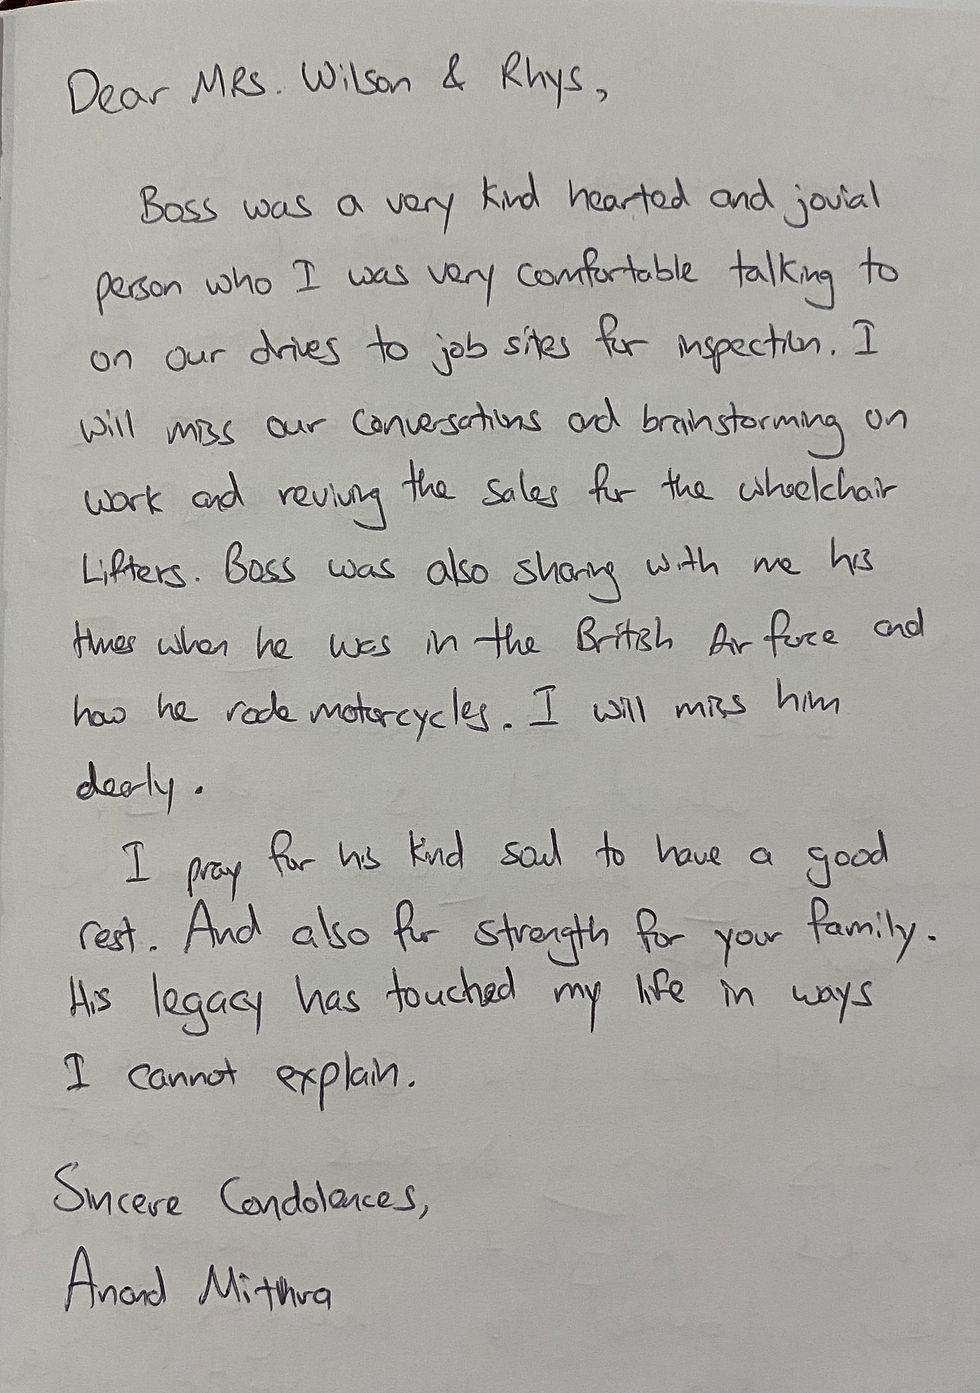 Dear MRS. Wilson & Rhys,
Boss was a very kind hearted and jovial
person who I was very comfortable talking to
on our drives to job sites for inspection. I
will miss our conversations and brainstorming on
work and reviving the sales for the wheelchair
Lifters. Boss was also sharing with me his
times when he was in the British Air force and
how he rode motorcycles. I will miss him
dearly.
I pray for his kind soul to have a good
rest. And also for strength for your family.
His legacy has touched my life in ways
I cannot explain.
Sincere Condolences,
Anand Mithra